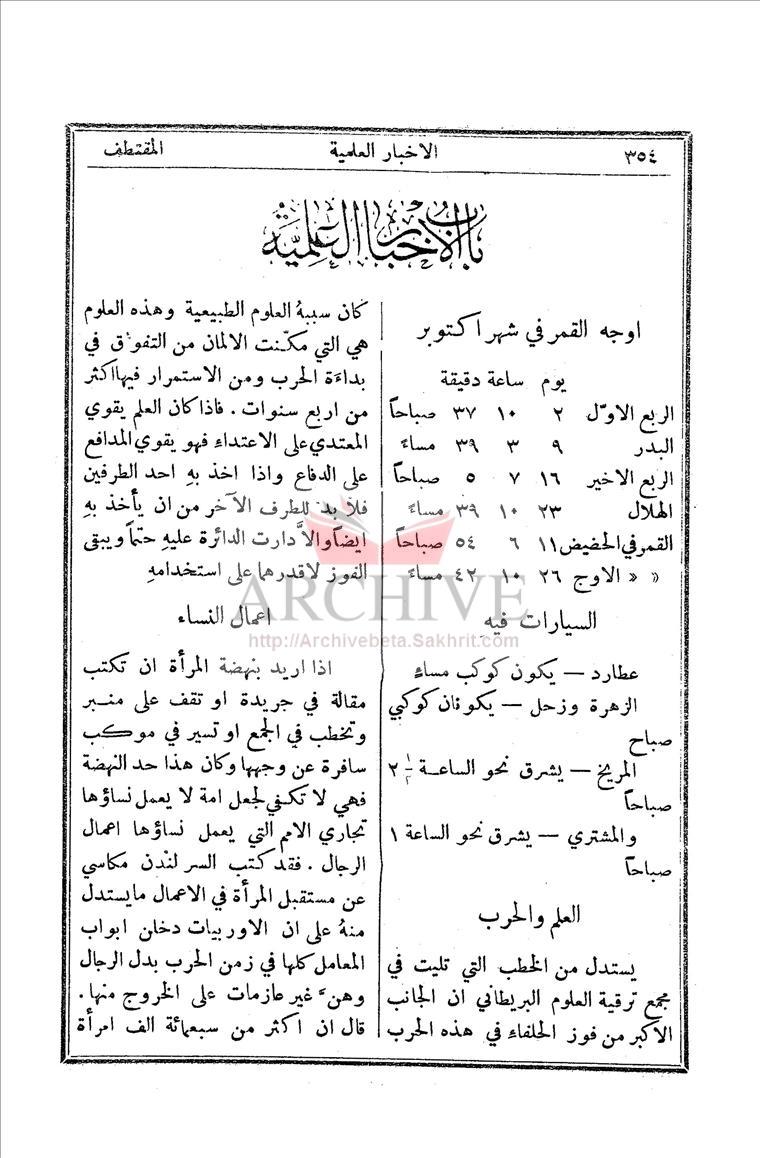 ٣٥٤ الاخبار العلمية المقتطف
باب الاخبار العلمية
اوجه القمر في شهر اكتوبر
يوم ساعة دقيقة
الربع الاوّل ٢ ١٠ ٣٧ صباحاً
البدر ٩ ٣ ٣٩ مساءً
الربع الاخير ١٦ ٧ ٥ صباحاً
الهلال ٢٣ ١٠ ٣٩ مساءً
القمر في الحضيض ١١ ٦ ٥٤ صباحاً
« « الاوج ٢٦ ١٠ ٤٢ مساءً
السيارات فيهِ
عطارد — يكون كوكب مساءٍ
الزهرة وزحل — يكونان كوكبي
صباح
المريخ — يشرق نحو الساعة ٢ ١/٢
صباحاً
والمشتري — يشرق نحو الساعة ١
صباحاً
العلم والحرب
يستدل من الخطب التي تليت في
مجمع ترقية العلوم البريطاني ان الجانب
الاكبر من فوز الحلفاء في هذه الحرب
كان سببهُ العلوم الطبيعية وهذه العلوم
هي التي مكّنت الالمان من التفوّق في
بداءَة الحرب ومن الاستمرار فيها اكثر
من اربع سنوات . فاذا كان العلم يقوي
المعتدي على الاعتداء فهو يقوي المدافع
على الدفاع واذا اخذ بهِ احد الطرفين
فلا بدَّ للطرف الآخر من ان يأخذ بهِ
ايضاً والاَّ دارت الدائرة عليهِ حتماً ويبقى
الفوز لاقدرهما على استخدامهِ
اعمال النساء
اذا اريد بنهضة المرأة ان تكتب
مقالة في جريدة او تقف على منبر
وتخطب في الجمع او تسير في موكب
سافرة عن وجهها وكان هذا حد النهضة
فهي لا تكفي لجعل امة لا يعمل نساؤها
تجاري الامم التي يعمل نساؤها اعمال
الرجال . فقد كتب السر لندن مكاسي
عن مستقبل المرأة في الاعمال ما يستدل
منهُ على ان الاوربيات دخلن ابواب
المعامل كلها في زمن الحرب بدل الرجال
وهنَّ غير عازمات على الخروج منها .
قال ان اكثر من سبعمائة الف امرأة
ARCHIVE
http://Archivebeta.Sakhrit.com